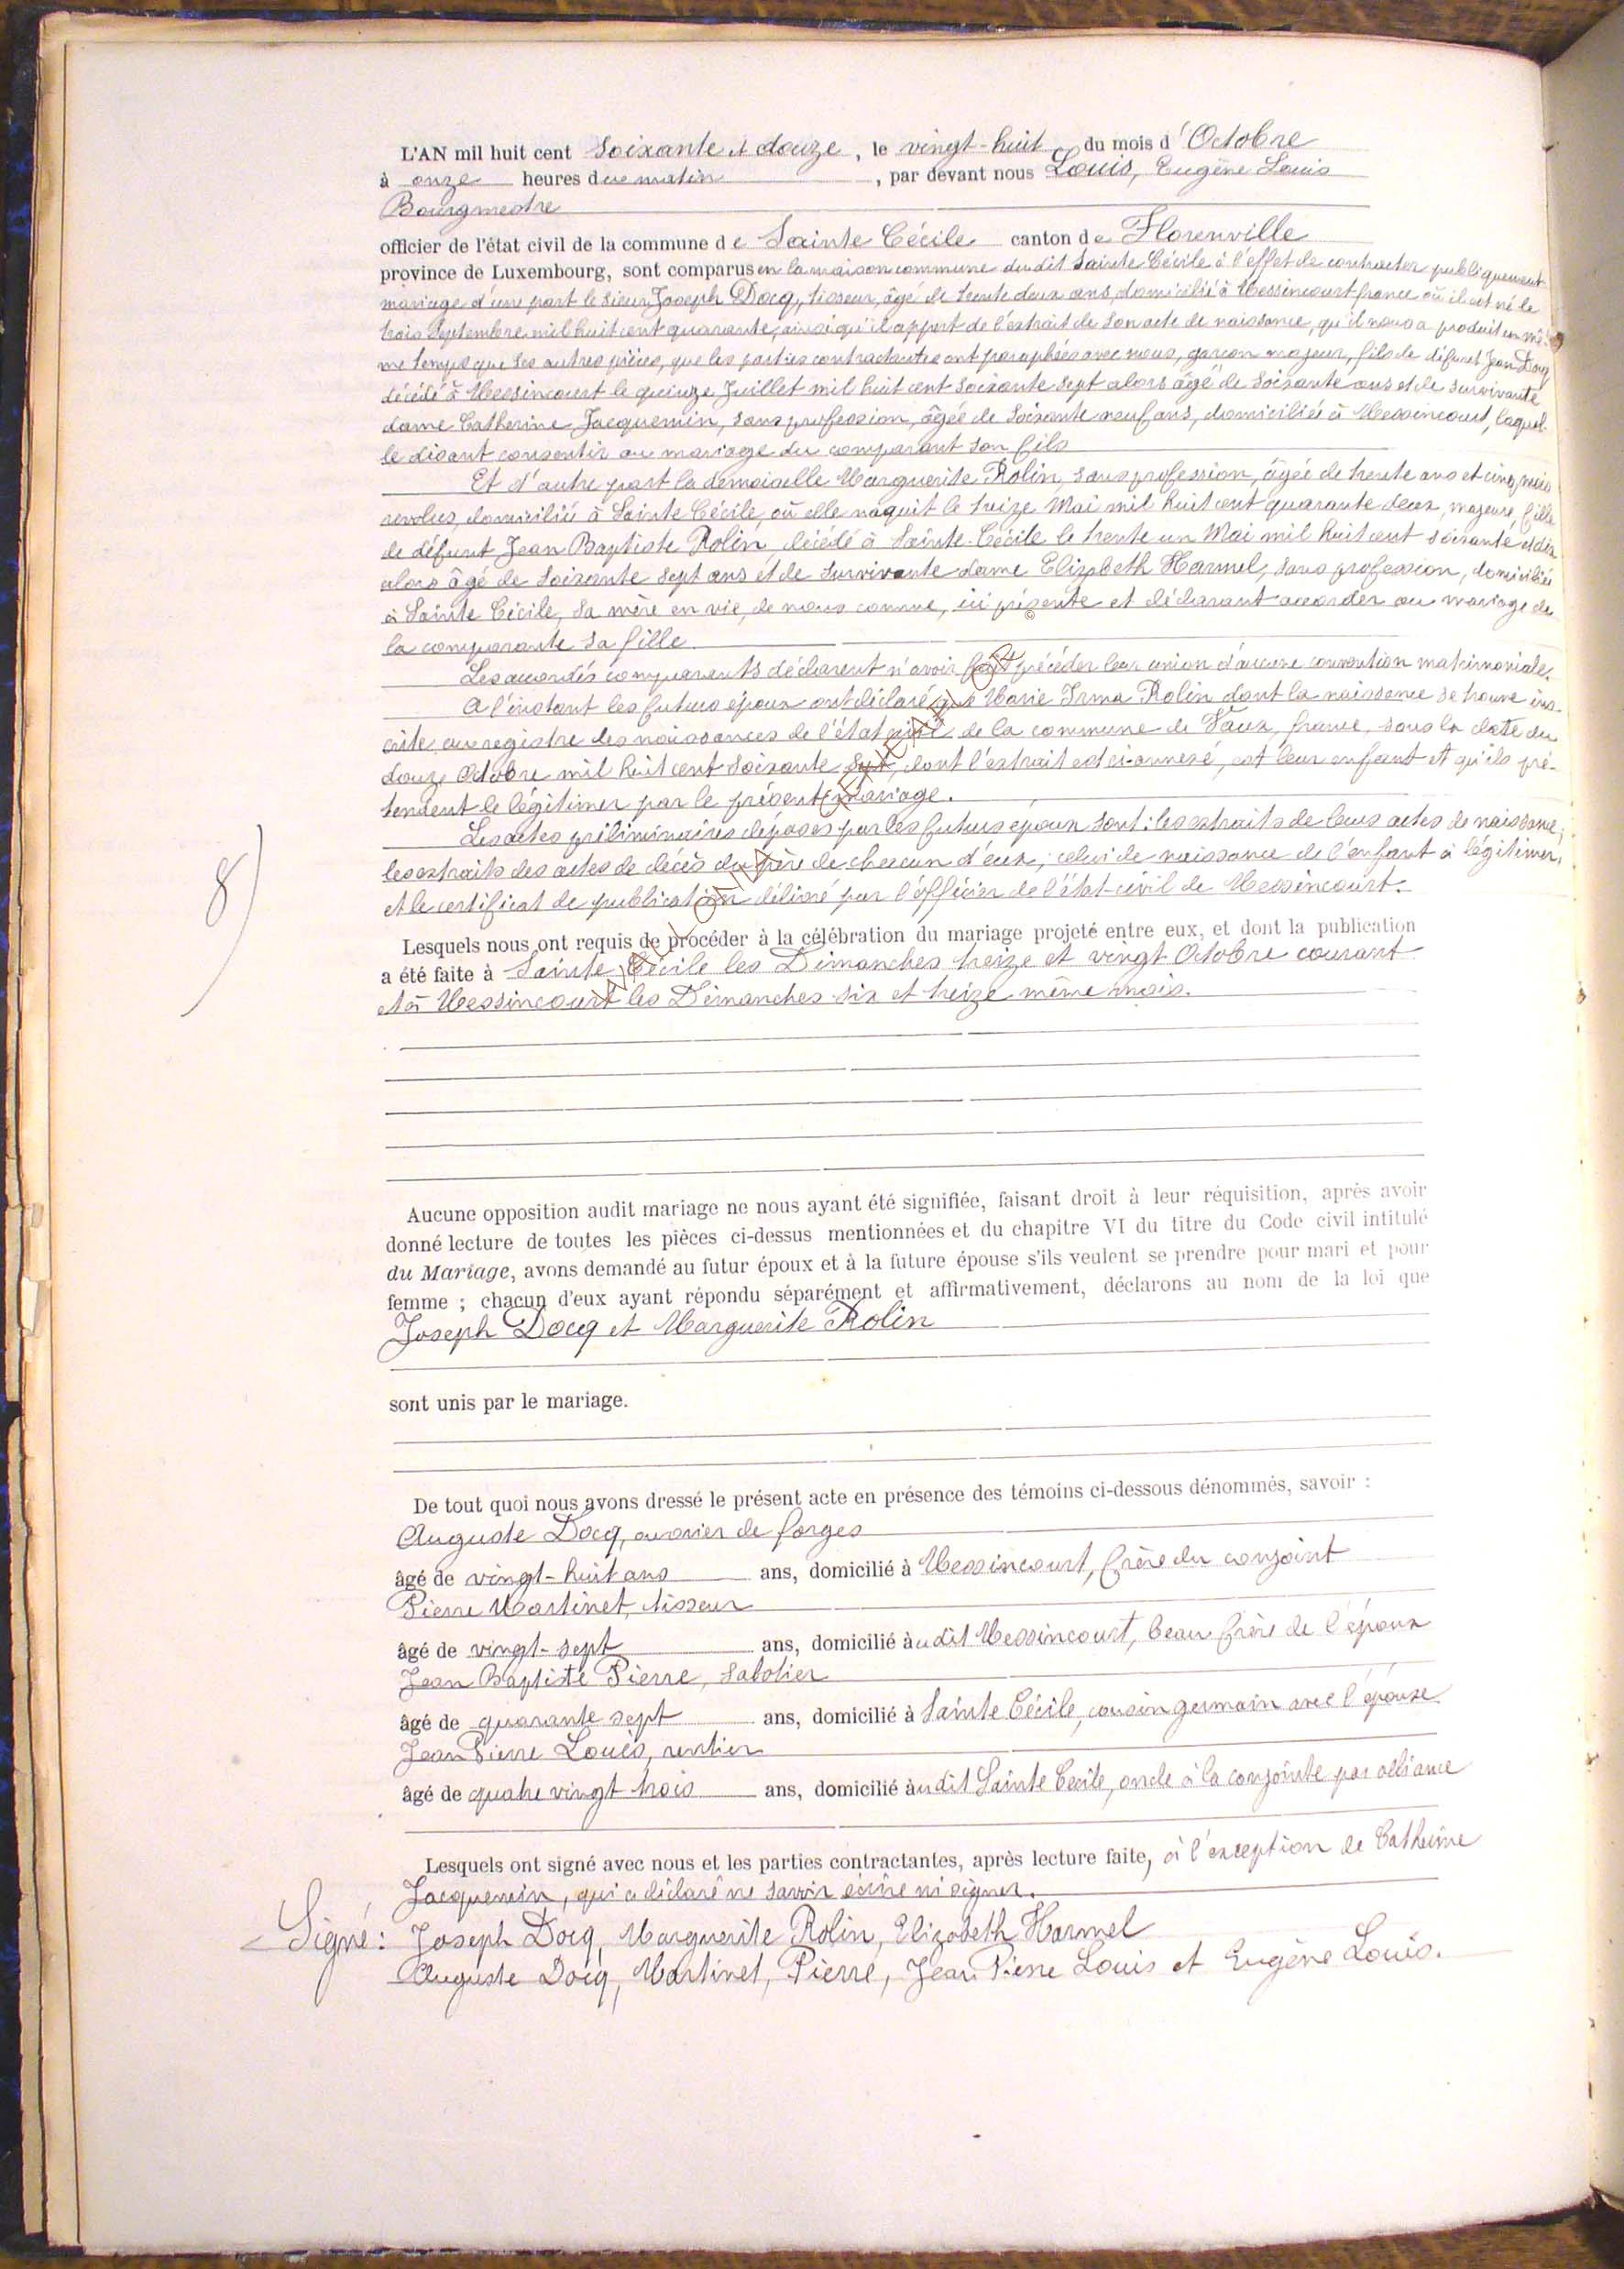 L'AN mil huit cent soixante et douze, le vingt-huit du mois d'Octobre
à onze heures du matin, par devant nous Louis, Eugène Louis
Bourgmestre
officier de l'état civil de la commune de Sainte Cécile canton de Florenville
province de Luxembourg, sont comparus en la maison commune du dit Sainte Cécile à l'effet de contracter publiquement
mariage d'une part le sieur Joseph Docq, tisseur, âgé de trente deux ans, domicilié à Messincourt france où il est né le
trois Septembre mil huit cent quarante, ainsi qu'il appert de l'extrait de son acte de naissance, qu'il nous a produit en mê-
me temps que ses autres pièces, que les parties contractantes ont paraphées avec nous, garçon majeur, fils de défunt Jean Docq
décédé à Messincourt le quinze Juillet mil huit cent soixante sept alors âgé de soixante ans et de survivante
dame Catherine Jacquemin, sans profession, âgée de soixante neuf ans, domiciliée à Messincourt, laquel-
le disant consentir au mariage du comparant son fils
Et d'autre part la demoiselle Marguerite Rolin, sans profession, âgée de trente ans et cinq mois
revolus, domiciliée à Sainte Cécile, où elle naquit le treize Mai mil huit cent quarante deux, majeure, fille
de défunt Jean Baptiste Rolin, décédé à Sainte-Cécile le trente un Mai mil huit cent soixante et dix
alors âgé de soixante sept ans et de survivante dame Elizabeth Harmel, sans profession, domiciliée
à Sainte Cécile, sa mère en vie, de nous connue, ici présente et déclarant accorder au mariage de
la comparante sa fille
Les accordés comparants déclarent n'avoir fait précéder leur union d'aucune convention matrimoniale.
A l'instant les futurs époux ont déclaré que Marie Irma Rolin dont la naissance se trouve ins-
crite au registre des naissances de l'état civil de la commune de Vaux, france, sous la date du
douze Octobre mil huit cent soixante sept, dont l'extrait est ci-annexé, est leur enfant et qu'ils pré-
tendent le légitimer par le présent mariage.
Les actes préliminaires déposés par les futurs époux sont: les extraits de leurs actes de naissance;
les extraits des actes de décès du père de chacun d'eux; celui de naissance de l'enfant à légitimer,
et le certificat de publication délivré par l'officier de l'état-civil de Messincourt.
8)
Lesquels nous ont requis de procéder à la célébration du mariage projeté entre eux, et dont la publication
a été faite à Sainte Cécile les Dimanches treize et vingt Octobre courant
et à Messincourt les Dimanches six et treize même mois.
Aucune opposition audit mariage ne nous ayant été signifiée, faisant droit à leur réquisition, après avoir
donné lecture de toutes les pièces ci-dessus mentionnées et du chapitre VI du titre du Code civil intitulé
du Mariage, avons demandé au futur époux et à la future épouse s'ils veulent se prendre pour mari et pour
femme ; chacun d'eux ayant répondu séparément et affirmativement, déclarons au nom de la loi que
Joseph Docq et Marguerite Rolin
sont unis par le mariage.
De tout quoi nous avons dressé le présent acte en présence des témoins ci-dessous dénommés, savoir :
Auguste Docq, ouvrier de forges
âgé de vingt-huit ans ans, domicilié à Messincourt, frère du conjoint
Pierre Martinet, tisseur
âgé de vingt-sept ans, domicilié àudit Messincourt, beau frère de l'époux
Jean Baptiste Pierre, sabotier
âgé de quarante sept ans, domicilié à Sainte Cécile, cousin germain avec l'épouse
Jean Pierre Louis, rentier
âgé de quatre vingt trois ans, domicilié àudit Sainte Cecile, oncle à la conjointe par alliance
Lesquels ont signé avec nous et les parties contractantes, après lecture faite, à l'exception de Catherine
Jacquemin, qui a déclaré ne savoir écrire ni signer.
Signé: Joseph Docq, Marguerite Rolin, Elizabeth Harmel
Auguste Docq, Martinet, Pierre, Jean Pierre Louis et Eugène Louis.